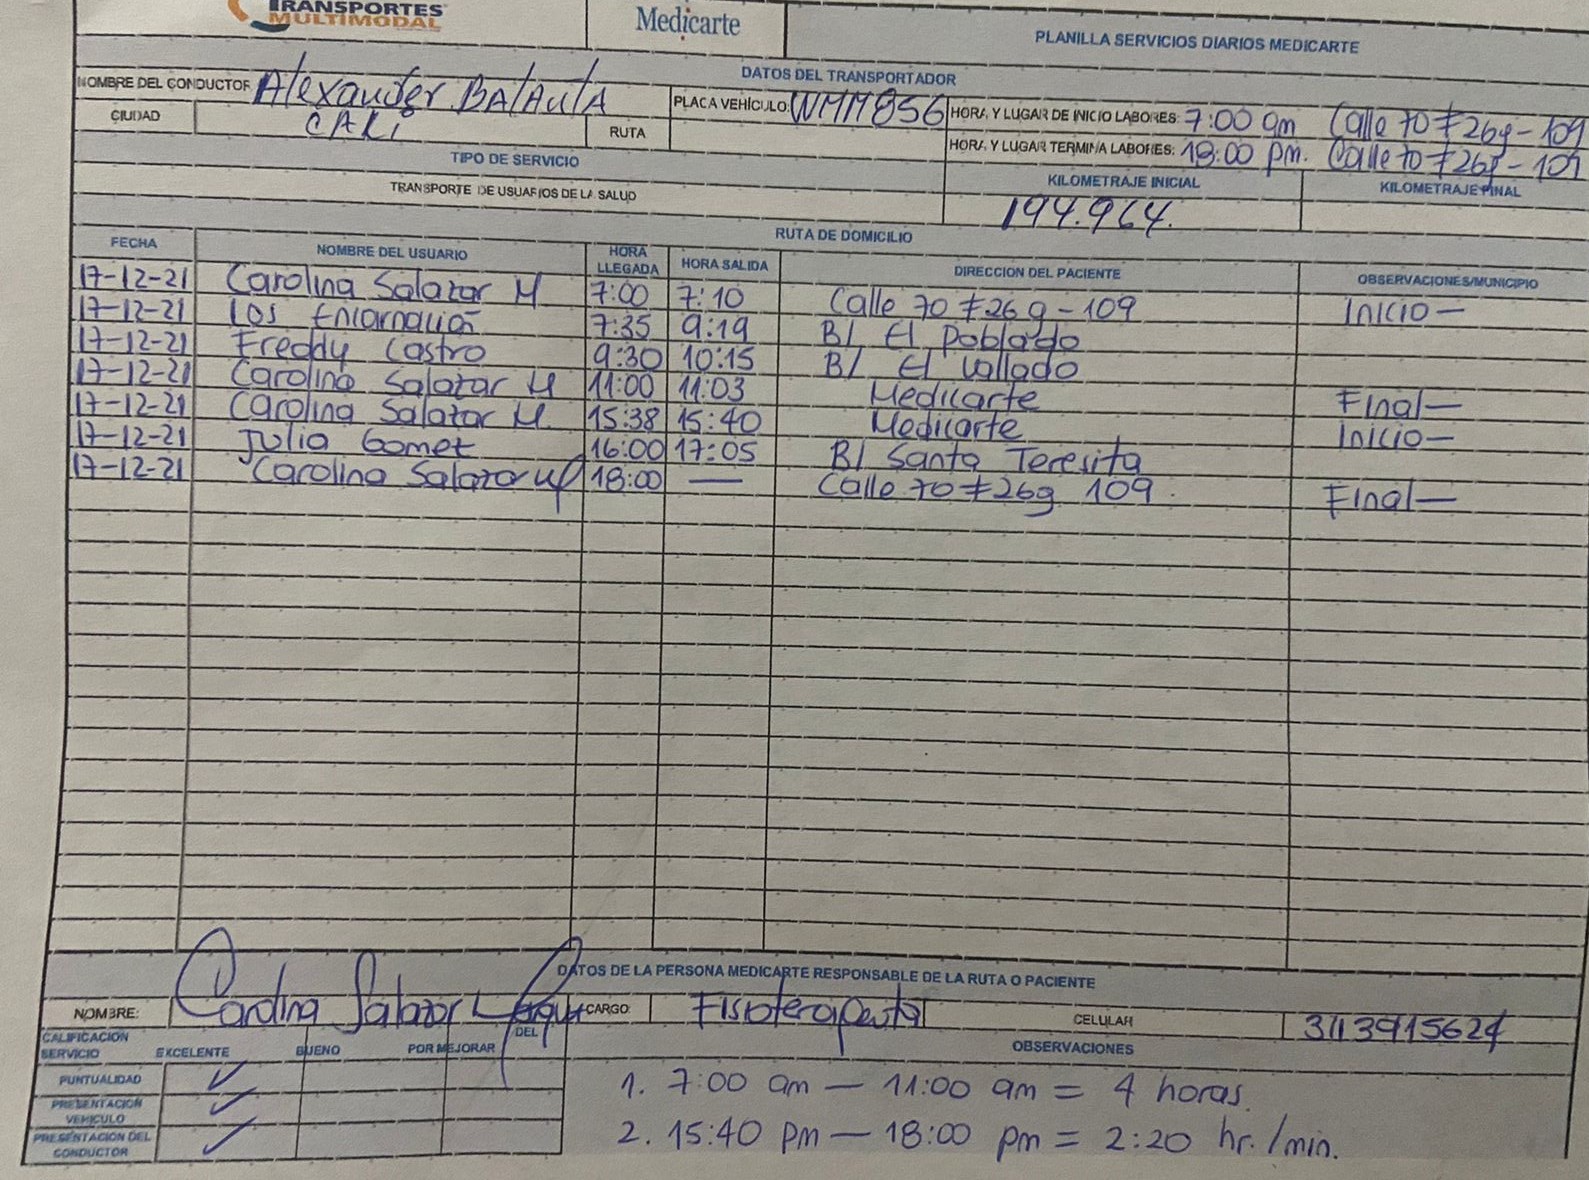 TRANSPORTES
MULTIMODAL
Medicarte
PLANILLA SERVICIOS DIARIOS MEDICARTE
DATOS DEL TRANSPORTADOR
NOMBRE DEL CONDUCTOR Alexander BAlAulA PLACA VEHÍCULO: WMM856 HORA Y LUGAR DE INICIO LABORES: 7:00 am Calle 70 #26g-109
CIUDAD CALI RUTA HORA Y LUGAR TERMINA LABORES: 18:00 pm. Calle 70 #26g-109
TIPO DE SERVICIO KILOMETRAJE INICIAL KILOMETRAJE FINAL
TRANSPORTE DE USUARIOS DE LA SALUD 194.964.
RUTA DE DOMICILIO
FECHA NOMBRE DEL USUARIO HORA LLEGADA HORA SALIDA DIRECCION DEL PACIENTE OBSERVACIONES/MUNICIPIO
17-12-21 Carolina Salazar M 7:00 7:10 Calle 70 #26g-109 Inicio-
17-12-21 Los Encarnación 7:35 9:19 B/ El Poblado
17-12-21 Freddy Castro 9:30 10:15 B/ El Vallado
17-12-21 Carolina Salazar M 11:00 11:03 Medicarte Final-
17-12-21 Carolina Salazar M. 15:38 15:40 Medicarte Inicio-
17-12-21 Julia Gomez 16:00 17:05 B/ Santa Teresita
17-12-21 Carolina Salazar 18:00 — Calle 70 #26g 109. Final-
DATOS DE LA PERSONA MEDICARTE RESPONSABLE DE LA RUTA O PACIENTE
NOMBRE: Carolina Salazar CARGO: Fisioterapeuta CELULAR 3113915624
CALIFICACION DEL SERVICIO EXCELENTE BUENO POR MEJORAR OBSERVACIONES
PUNTUALIDAD ✓ 1. 7:00 am — 11:00 am = 4 horas.
PRESENTACION VEHICULO ✓
PRESENTACION DEL CONDUCTOR ✓ 2. 15:40 pm — 18:00 pm = 2:20 hr./min.